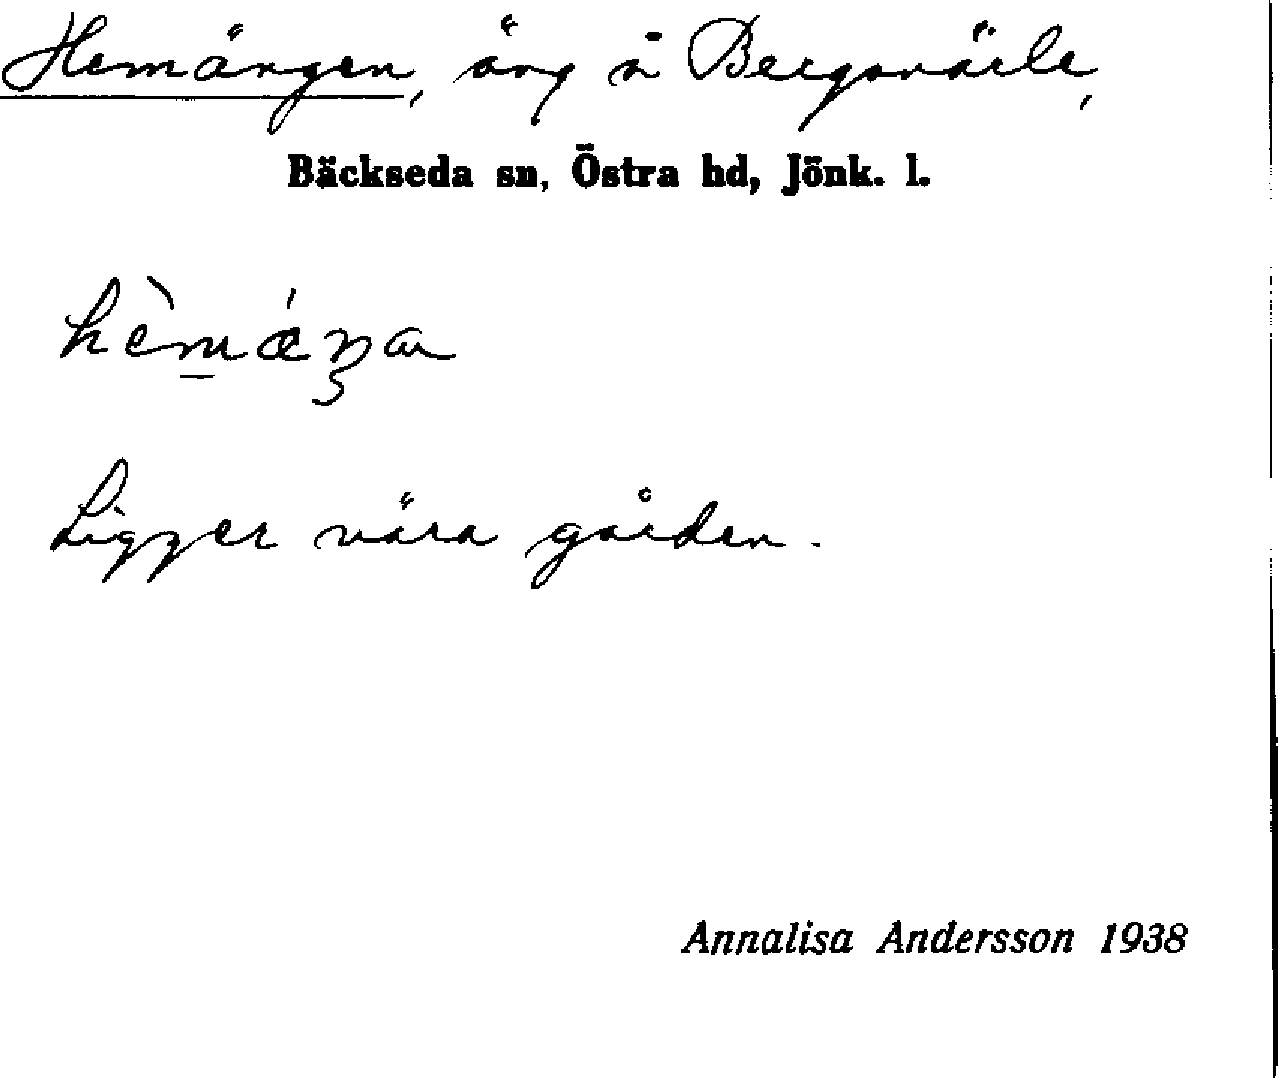 Hemängen, äng å Bergsnärle,
Bäckseda sn, Östra hd, Jönk. l.
Ligger nära gården.
Annalisa Andersson 1938